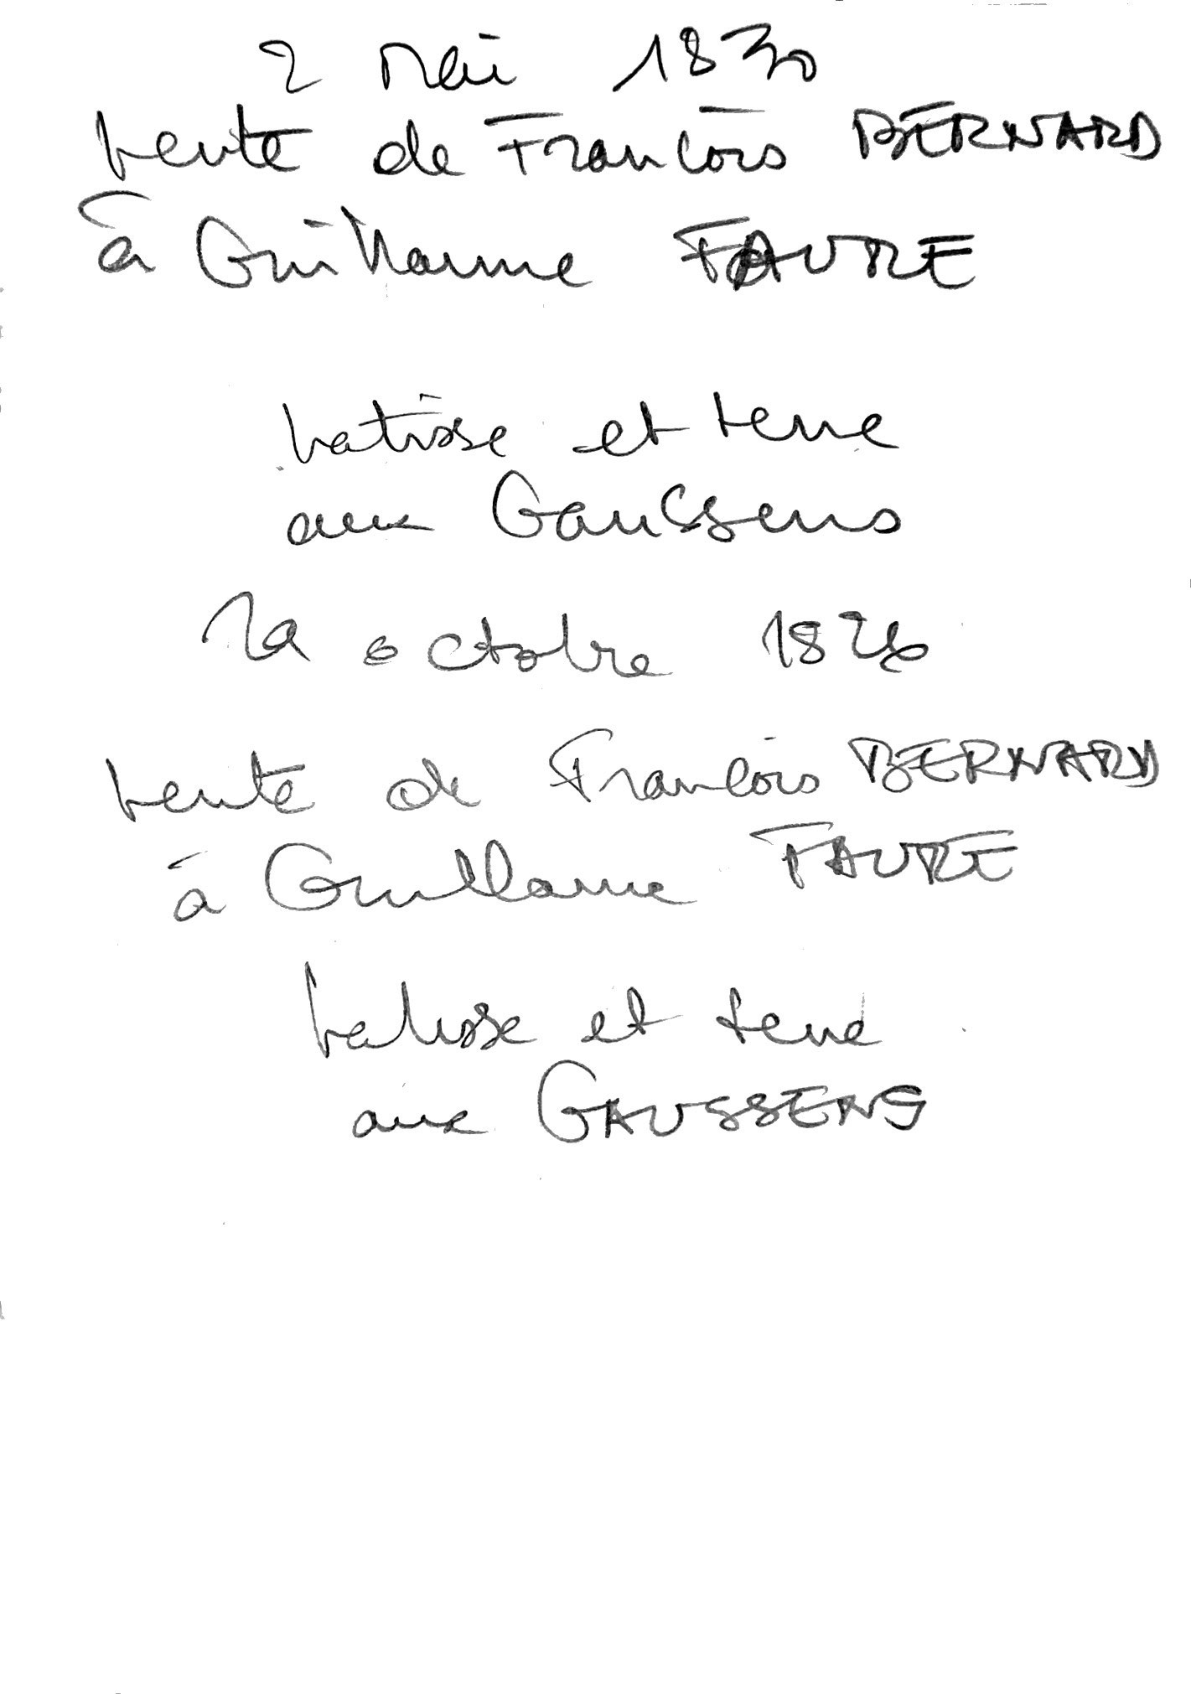 2 Mai 1830
vente de François BERNARD
à Guillaume FAURE
batisse et terre
aux Gaussens
octobre 1826
vente de François BERNARD
à Guillaume FAURE
batisse et terre
aux GAUSSENS